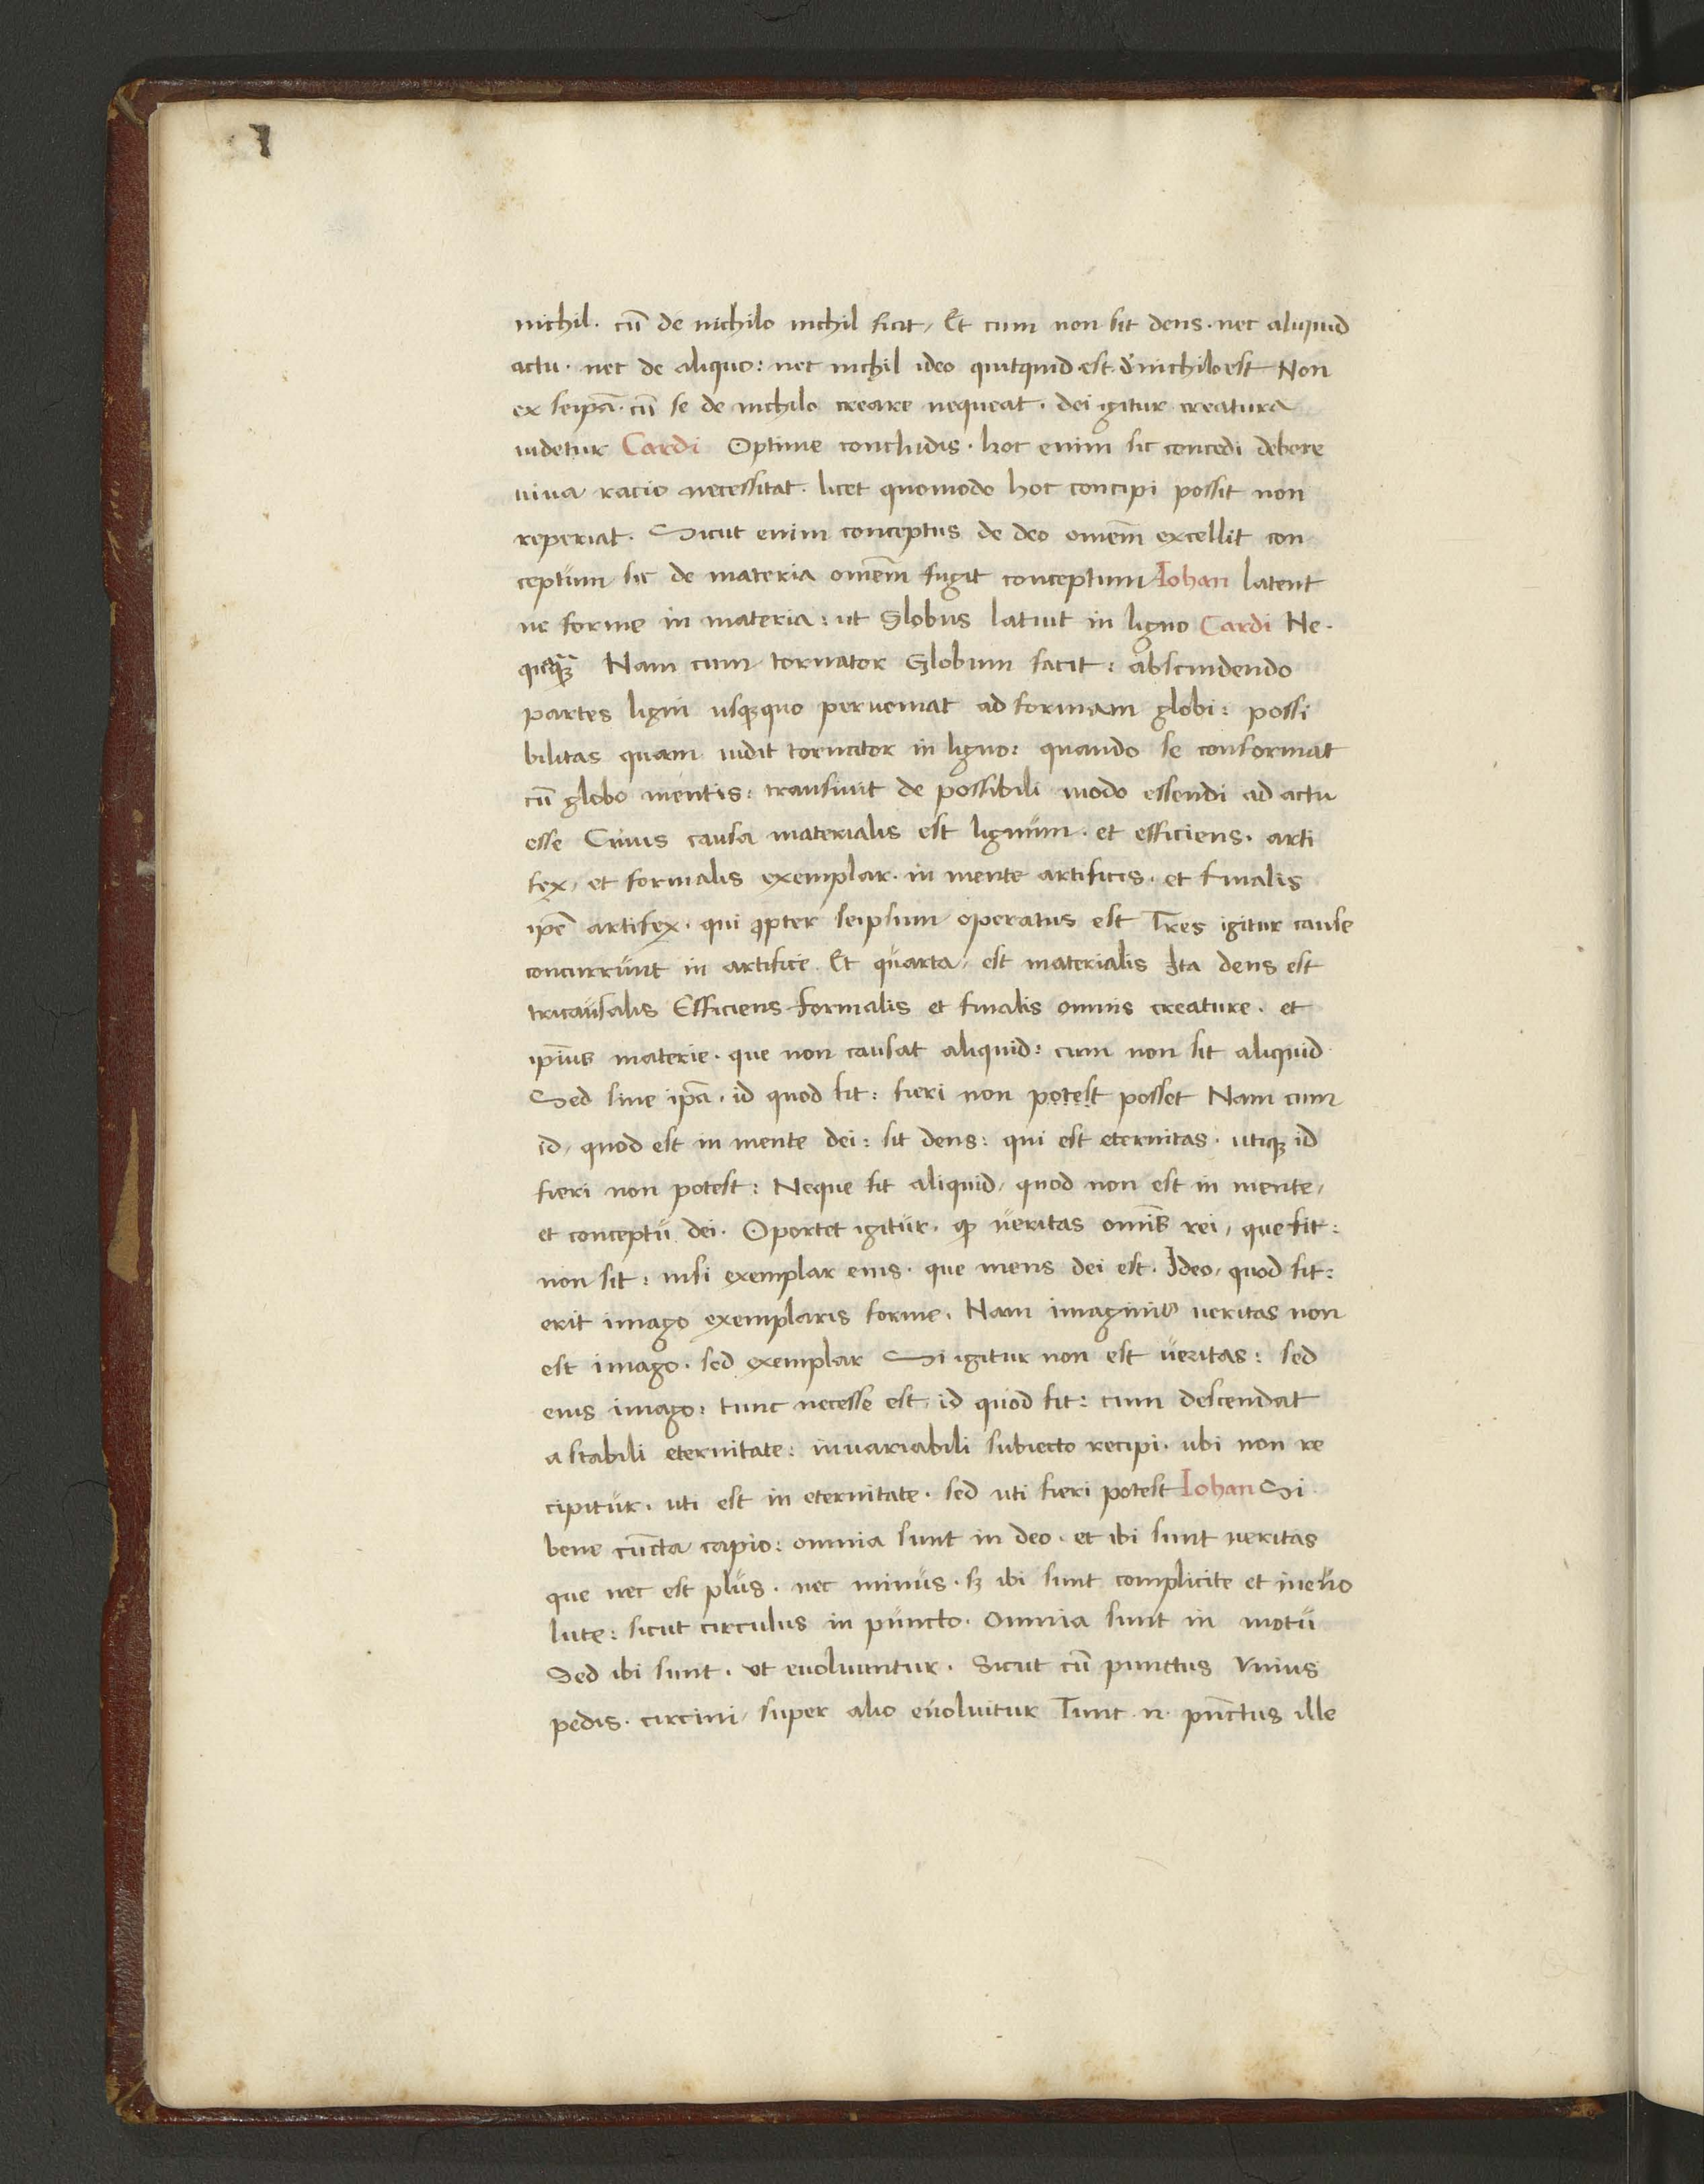 nichil. cū de nichilo nichil ficit, Et cum non sit deus. nec aliquid
actu. nec de aliquo: nec nichil ideo quitquid est. de nichilo est Non
ex seipā. cū se de nichilo creare nequeat. dei igitur creatura
uidetur Cardi Optime concludis. hoc enim sic concedi debere
uiua racio necessitat. licet quomodo hoc concipi possit non
reperiat. Sicut enim conceptus de deo omēm excellit con
ceptum sic de materia omēm fugit conceptum Iohan latent
ne forme in materia: ut Globus latuit in ligno Cardi Ne.
Nam cum tornator Globum facit: abscindendo
partes ligni usq̧quo perueniat ad formam globi: possi
bilitas quam uidit tornator in ligno: quando se conformat
cū globo mentis: transiuit de possibili modo essendi ad actu
esse Cuius causa materialis est lignum. et efficiens. arti
fex, et formalis exemplar. in mente artificis. et finalis
ip̄e artifex. qui ꝓpter seipsum operatus est Tres igitur cause
concurrunt in artifice. Et quarta, est materialis Ita deus est
tricausalis Efficiens formalis et finalis omnis creature. et
ip̄ius materie. que non causat aliquid: cum non sit aliquid
Sed sine ip̄a. id quod fit: fieri non potest posset Nam cum
id, quod est in mente dei: sit deus: qui est eternitas. utiq̧ id
fieri non potest: Neque fit aliquid, quod non est in mente,
et conceptu dei. Oportet igitur. ꝙ ueritas omīs rei, que fit:
non sit: nisi exemplar eius. que mens dei est. Ideo, quod fit:
erit imago exemplaris forme. Nam imaginis ueritas non
est imago. sed exemplar Si igitur non est ueritas: sed
eius imago: tunc necesse est, id quod fit: cum descendat
a stabili eternitate: inuariabili subiecto recipi. ubi non re
cipitur. uti est in eternitate. sed uti fieri potest Iohan Si
bene cūcta capio: omnia sunt in deo. et ibi sunt ueritas
que nec est plus. nec minus. sꝫ ibi sunt complicite et ineuo
lute: sicut circulus in puncto. Omnia sunt in motu
Sed ibi sunt. ut euoluuntur. Sicut cū punctus Vnius
pedis. circini, super alio euoluitur Tunc .n. pūctus ille